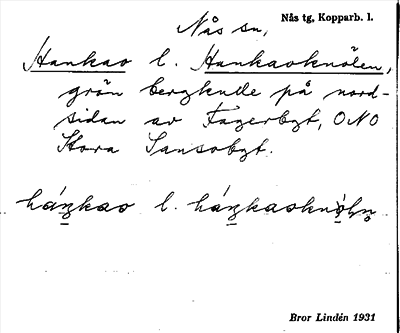 Nås sn, Nås tg, Kopparb. l.
Hankao l. Hankaoknölen,
grön bergkulle på nord-
sidan av Fagerbgt, ONO
Stora Sansobgt.
háŋkao l. háŋkaoknö̀ln̥
Bror Lindén 1931